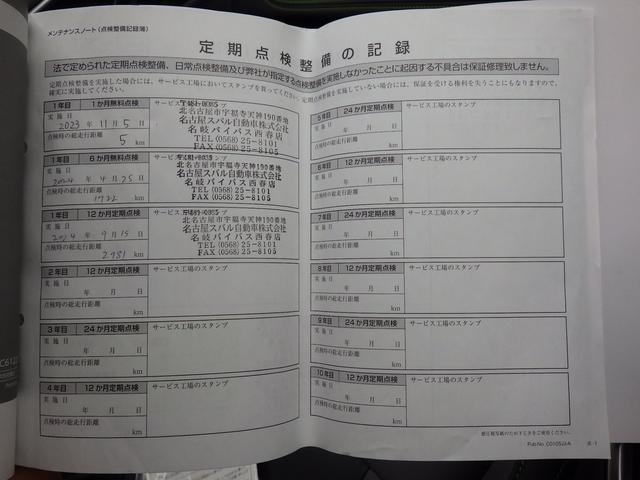 メンテナンスノート(点検整備記録簿)
定期点検整備の記録
法で定められた定期点検整備、日常点検整備及び弊社が指定する点検整備を実施しなかったことに起因する不具合は保証修理致しません。
定期点検整備を実施した場合には、サービス工場においてスタンプを貰ってください。定期点検整備を実施していない場合には、保証を受ける権利を失うことにもなりますので、
確実に実施してください。
1年目 1か月無料点検
実施日
2023年11月5日
点検時の総走行距離
5 km
〒481-0035
北名古屋市宇福寺天神190番地
名古屋スバル自動車株式会社
名岐バイパス西春店
TEL(0568)25-8101
FAX(0568)25-8105
1年目 6か月無料点検
実施日
2024年4月25日
点検時の総走行距離
1722 km
〒481-0035
北名古屋市宇福寺天神190番地
名古屋スバル自動車株式会社
名岐バイパス西春店
TEL(0568)25-8101
FAX(0568)25-8105
1年目 12か月定期点検
実施日
2024年9月15日
点検時の総走行距離
2,981 km
〒481-0035
北名古屋市宇福寺天神190番地
名古屋スバル自動車株式会社
名岐バイパス西春店
TEL(0568)25-8101
FAX(0568)25-8105
2年目 24か月定期点検 サービス工場のスタンプ
実施日
年 月 日
点検時の総走行距離
km
3年目 24か月定期点検 サービス工場のスタンプ
実施日
年 月 日
点検時の総走行距離
km
4年目 12か月定期点検 サービス工場のスタンプ
実施日
年 月 日
点検時の総走行距離
km
5年目 24か月定期点検 サービス工場のスタンプ
実施日
年 月 日
点検時の総走行距離
km
6年目 12か月定期点検 サービス工場のスタンプ
実施日
年 月 日
点検時の総走行距離
km
7年目 24か月定期点検 サービス工場のスタンプ
実施日
年 月 日
点検時の総走行距離
km
8年目 12か月定期点検 サービス工場のスタンプ
実施日
年 月 日
点検時の総走行距離
km
9年目 24か月定期点検 サービス工場のスタンプ
実施日
年 月 日
点検時の総走行距離
km
10年目 12か月定期点検 サービス工場のスタンプ
実施日
年 月 日
点検時の総走行距離
km
Pub.No. C0105JJ-A